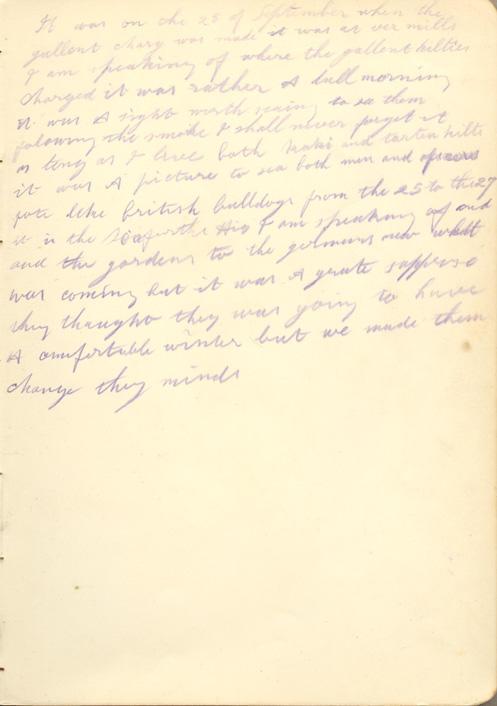 It was on the 25 of September when the
gallent charg was made it was at ver mills
I am speaking of where the gallent kilties
charged it was rather A dull morning
it was A sight worth seaing to se them
folowing the smoke I shall never forget it
as long as I live both kaki and tarten kilts
it was A picture to sea both men and
fote like british bulldogs from the 25 to the 27
it is the Seaforths Hig I am speaking of and
and the gordens to the germans new whatt
was coming but it was A grate supprise
they thought they was going to have
A comfortable winter but we made them
change they minds